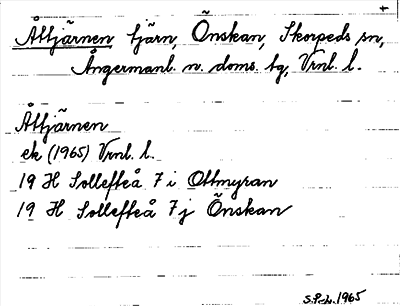 Åttjärnen tjärn, Önskan, Skorpeds sn,
Ångermanl. n. doms. tg, Vrnl. l.
Åttjärnen
ek (1965) Vrnl. l.
19 H Sollefteå 7 i Ottmyran
19 H Sollefteå 7 j Önskan
1965